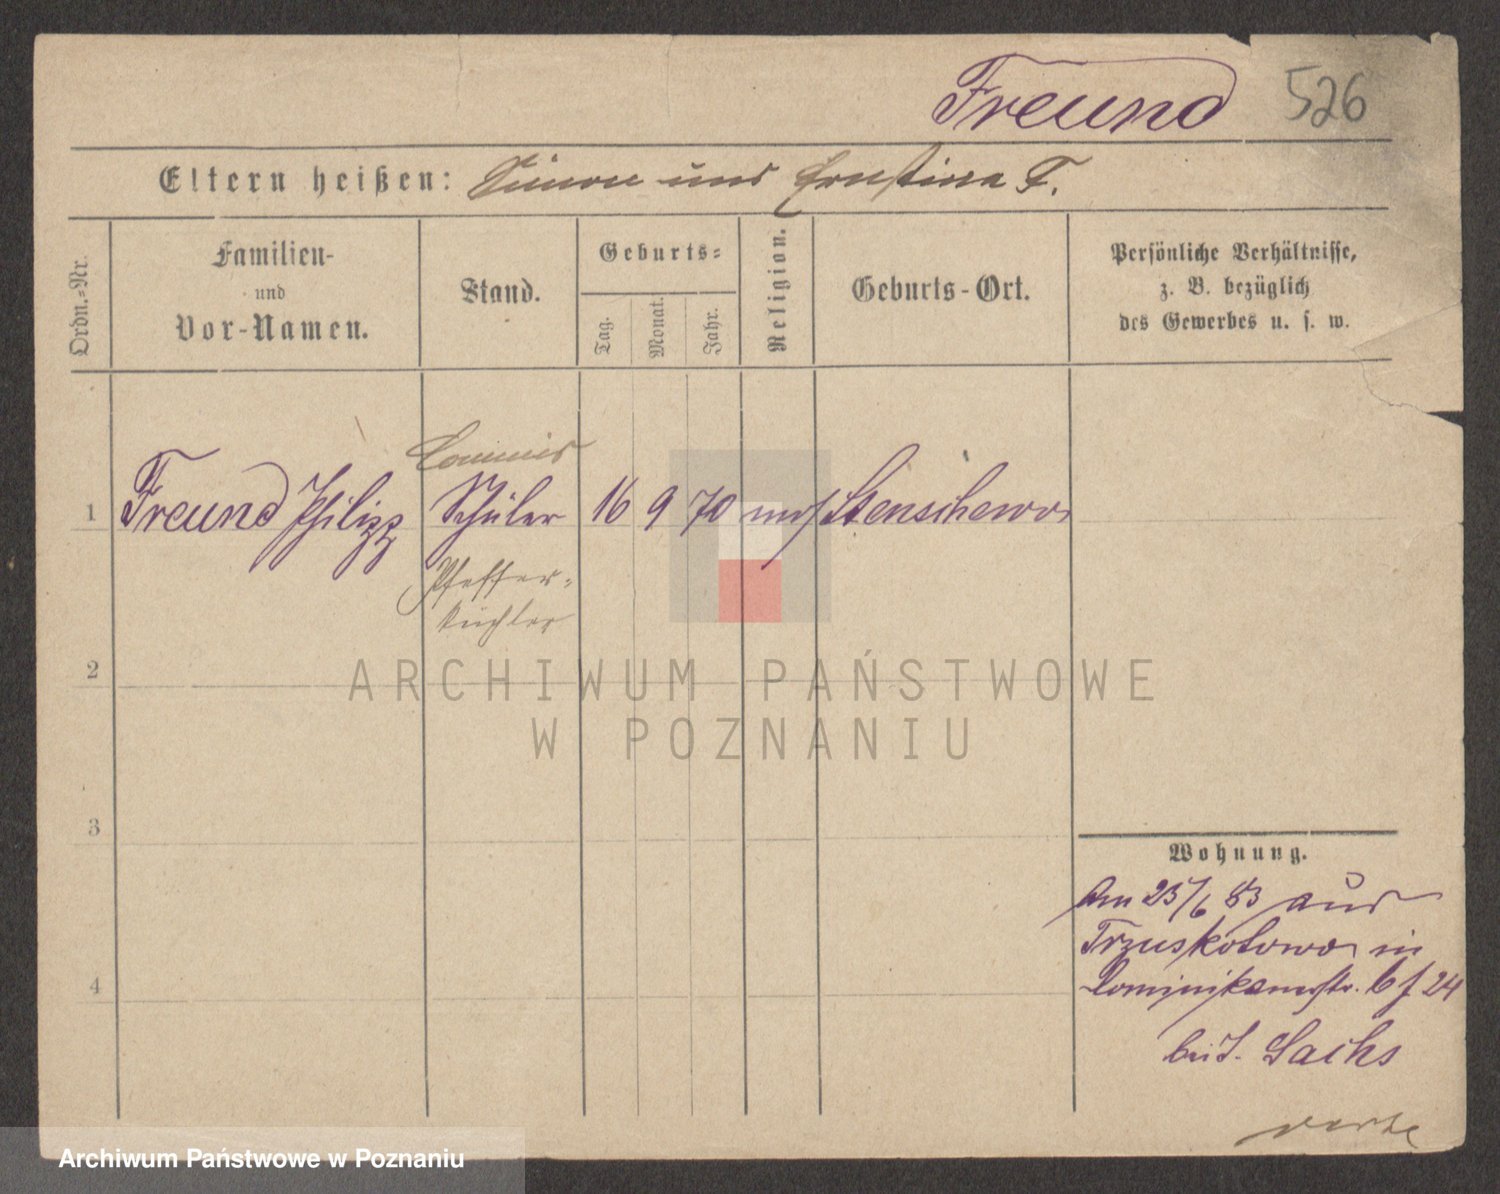 Freund 526
Eltern heißen: Simon und Ernstina F.
Ordn.=Nr.
Familien-
und
Vor-Namen.
Stand.
Geburts=
Tag.
Monat.
Jahr.
Religion.
Geburts-Ort.
Persönliche Verhältnisse,
z. B. bezüglich
des Gewerbes u. s. w.
Commis
1 Freund Philipp Schüler 16 9 70 mos Stenschewo
Pfeffer-
küchler
2
3
4
Wohnung.
Am 25/6 83 aus
Trzuskotowo in
Dominikanerstr. 24
bei J. Sachs
ARCHIWUM PAŃSTWOWE
W POZNANIU
Archiwum Państwowe w Poznaniu